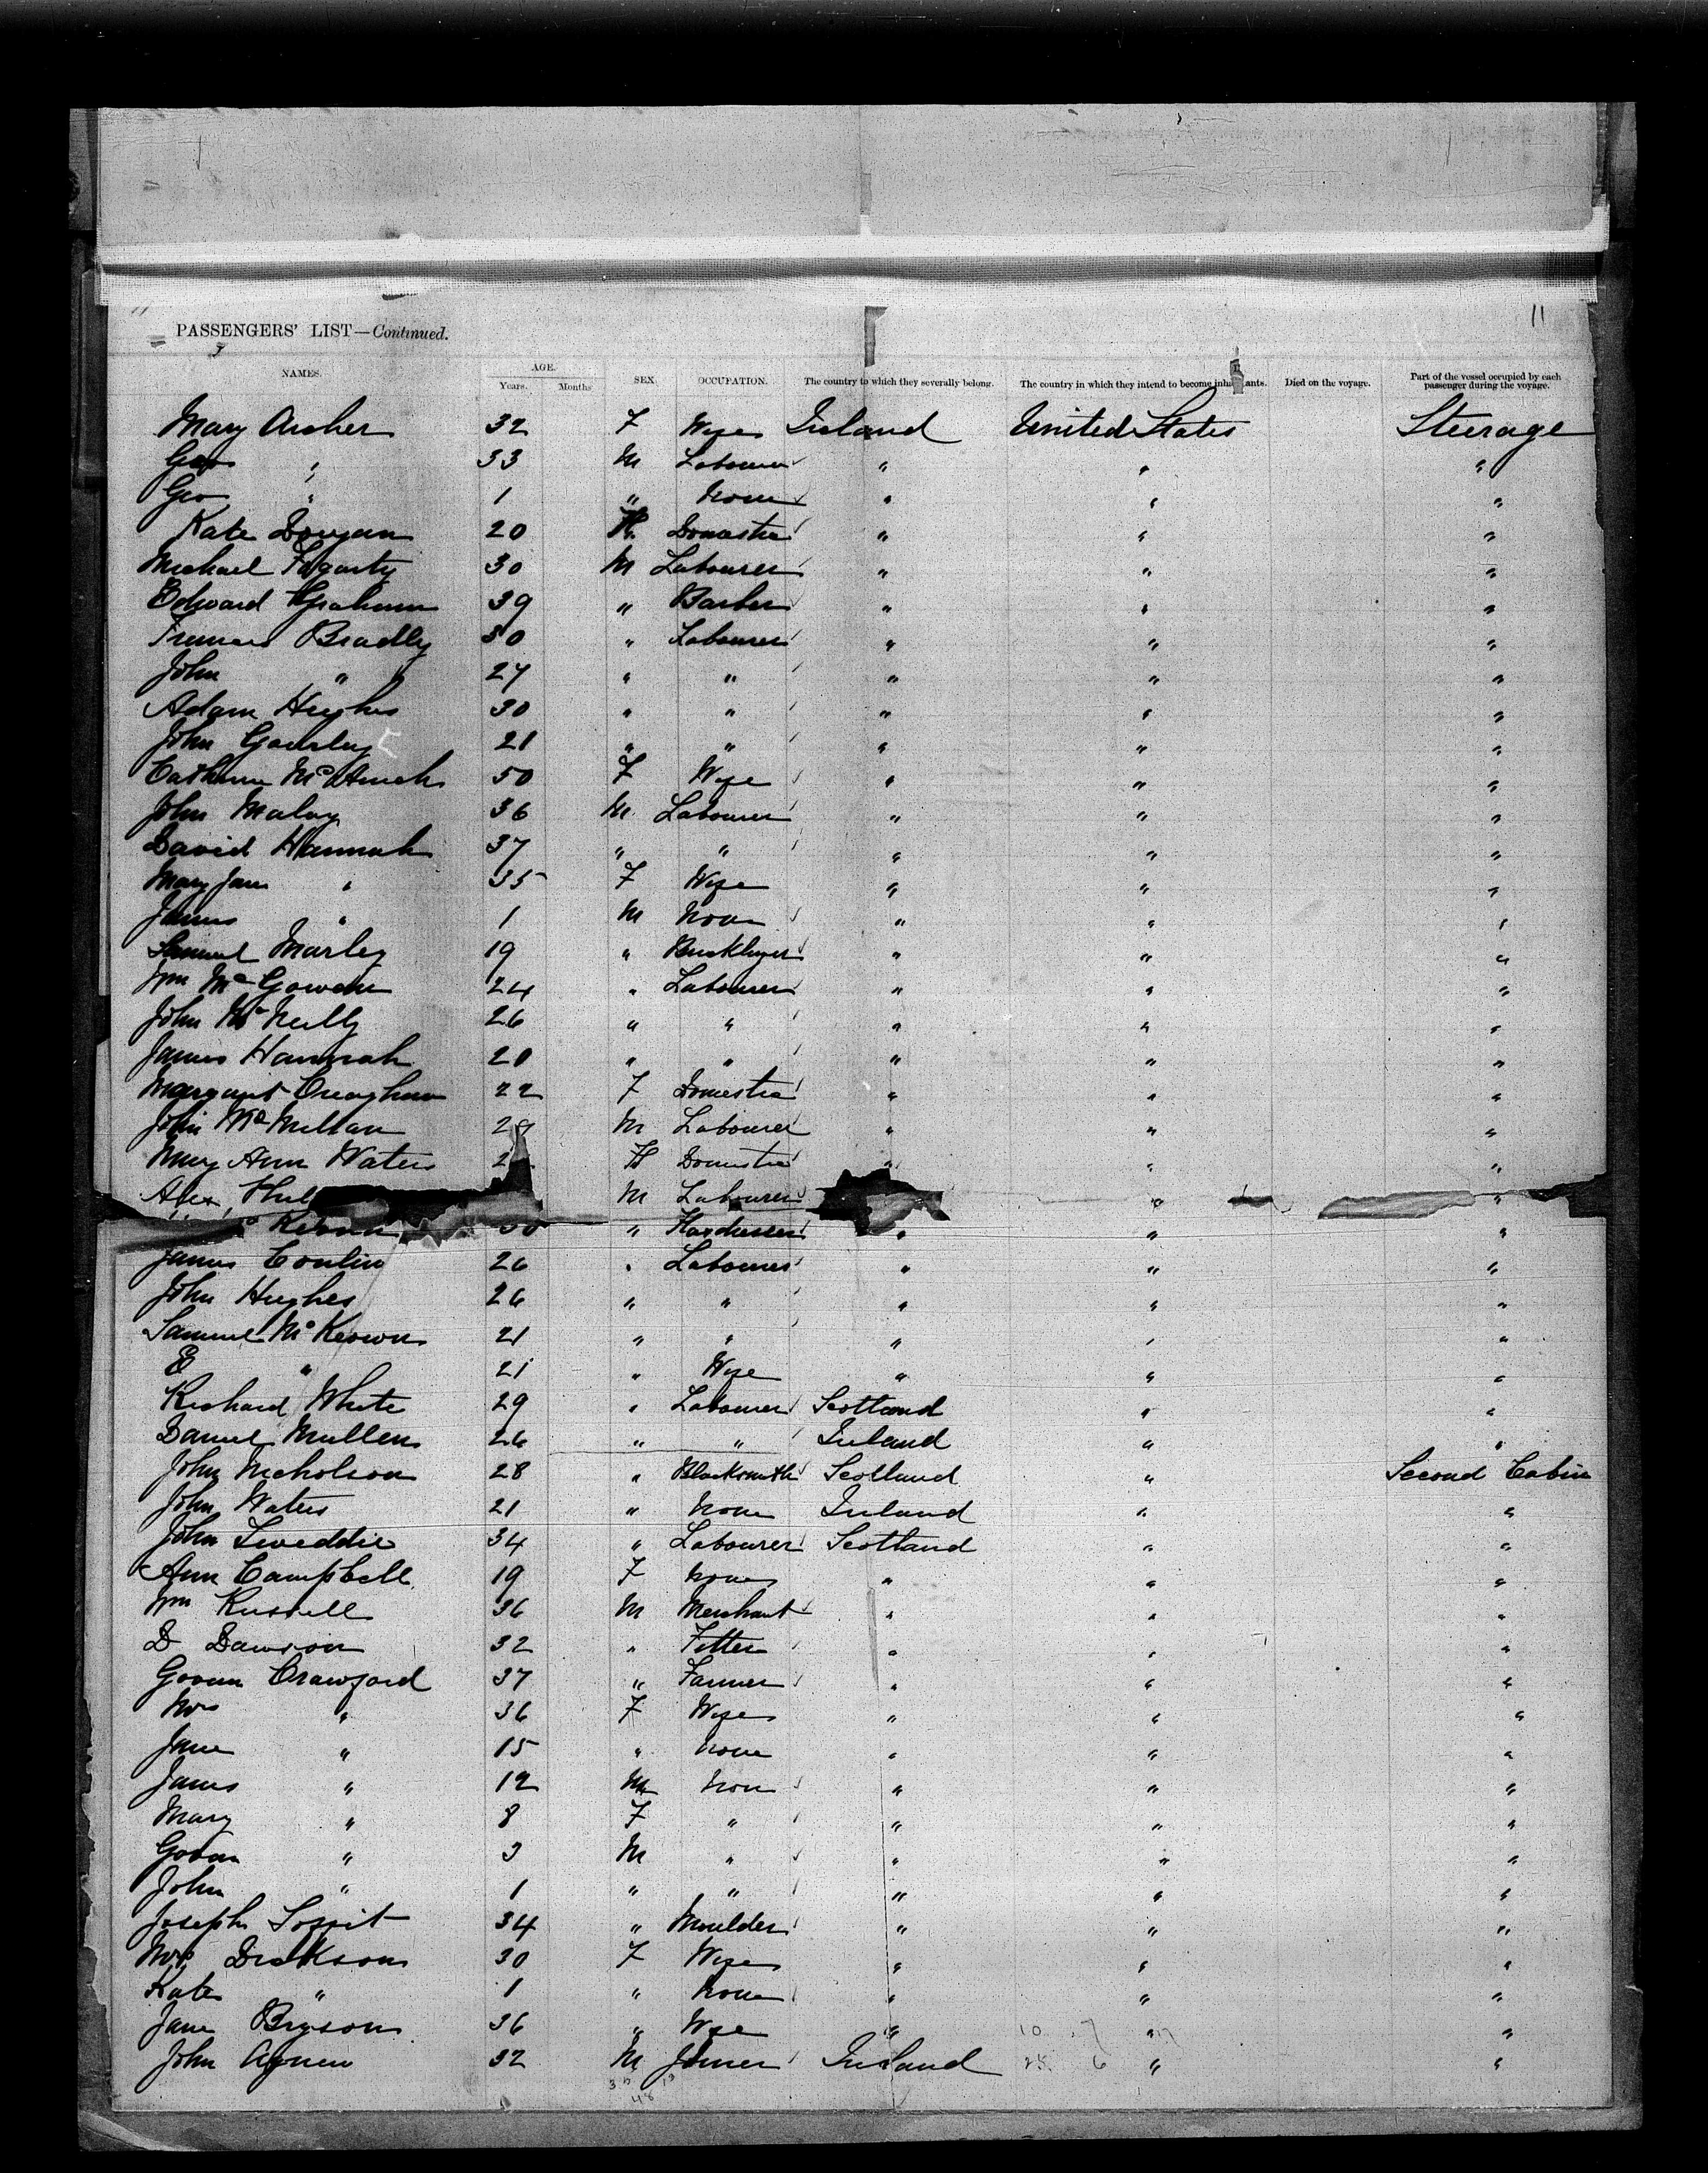 11
PASSENGERS' LIST—Continued.
NAMES. AGE. Years. Months SEX. OCCUPATION. The country to which they severally belong. The country in which they intend to become inhabitants. Died on the voyage. Part of the vessel occupied by each passenger during the voyage.
Mary Archer 32 F Wife Ireland United States Steerage
Geo " 33 M Labourer " " "
Geo " 1 " None " " "
Kate 20 F. Domestic " " "
Michael Fogarty 30 M Labourer " " "
Edward Graham 39 " Barber " " "
Bradly 30 " Labourer " " "
John " 27 " " " " "
Adam Hughes 30 " " " " "
John Gourley 21 " " " " "
50 F Wife " " "
John Maloy 36 M Labourer " " "
David Hannah 37 " " " " "
Mary Jane " 35 F Wife " " "
James " 1 M None " " "
Samuel Marley 19 " Bricklayer " " "
Wm McGowan 24 " Labourer " " "
John McNeilly 26 " " " " "
James Hannah 20 " " " " "
Margaret Creaghan 22 F Domestic " " "
John McMillan M Labourer " " "
Mary Ann Waters F Domestic " " "
Alex M Labourer " "
" " " "
James Conlin 26 " Labourer " " "
John Hughes 26 " " " " "
Samuel McKeown 21 " " " " "
E " 21 " Wife " " "
Richard White 29 " Labourer Scotland " "
Daniel Mullen 26 " " Ireland " "
John Nicholson 28 " Blacksmith Scotland " Second Cabin
John Waters 21 " None Ireland " "
John Tweddie 34 " Labourer Scotland " "
Ann Campbell 19 F None " " "
Wm Russell 36 M Merchant " " "
D Dawson 32 " Fitter " " "
Govan Crawford 37 " Farmer " " "
Mrs " 36 F Wife " " "
Jane " 15 " None " " "
James " 12 M None " " "
Mary " 8 F " " " "
Govan " 3 M " " " "
John " 1 " " " " "
Joseph 34 " Moulder " " "
Mrs Dickson 30 F Wife " " "
Kate " 1 " None " " "
Jane Bryson 36 " Wife " " "
John Agnew 32 M Joiner Ireland " "